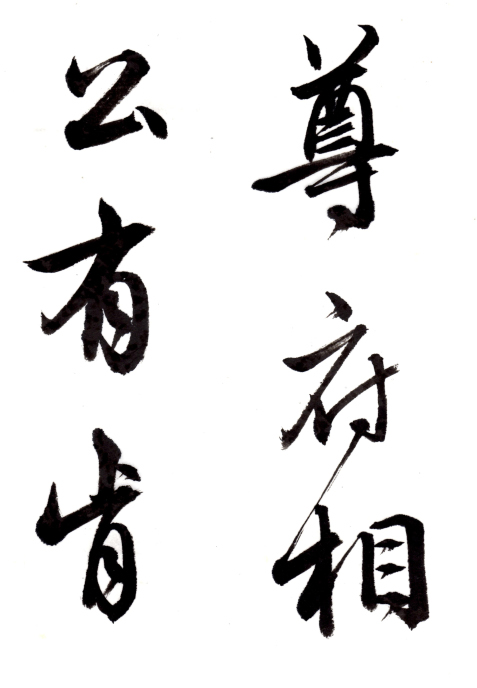 尊府相
公有肯